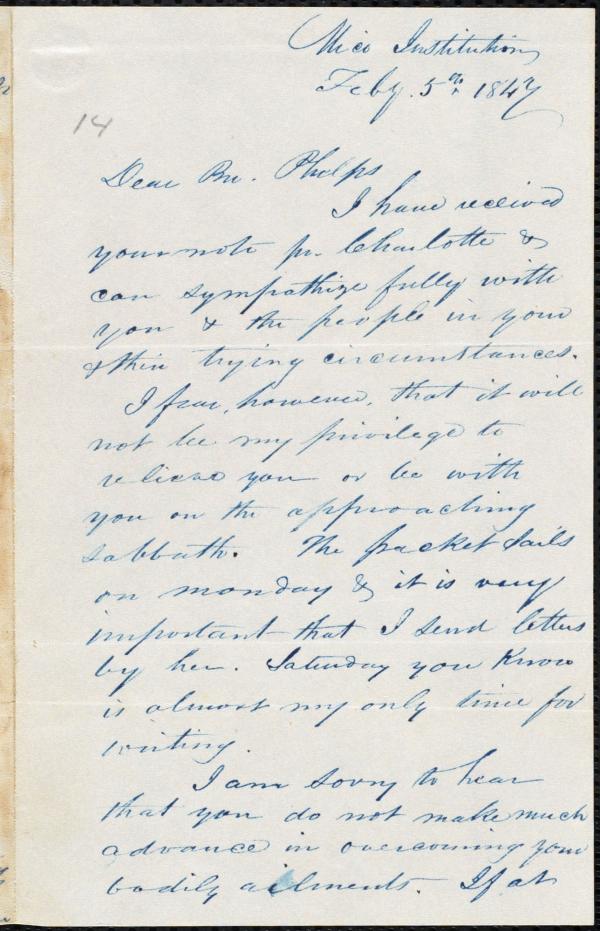 Mico Institution
Feby. 5th 1847
14
Dear Br. Phelps
I have received
your note pr. Charlotte &
can sympathize fully with
you & the people in your
& their trying circumstances.
I fear, however, that it will
not be my privilege to
relieve you or be with
you on the approaching
sabbath. The packet sails
on monday & it is very
important that I send letters
by her. Saturday you know
is almost my only time for
writing.
I am sorry to hear
that you do not make much
advance in overcoming your
bodily ailments. If at